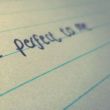 perfect to me